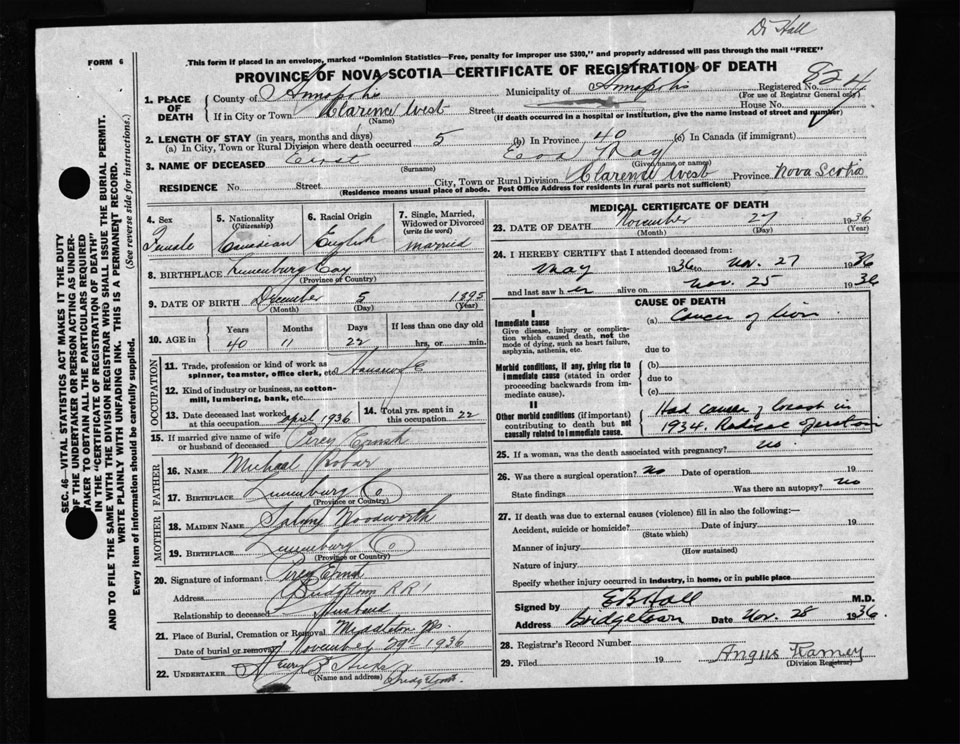 Dr Hall
FORM 6
This form if placed in an envelope, marked "Dominion Statistics—Free, penalty for improper use $300," and properly addressed will pass through the mail "FREE"
PROVINCE OF NOVA SCOTIA—CERTIFICATE OF REGISTRATION OF DEATH
1. PLACE OF DEATH
County of Annapolis Municipality of Annapolis Registered No. 824
(For use of Registrar General only)
If in City or Town Clarence West Street House No.
(Name) (If death occurred in a hospital or institution, give the name instead of street and number)
2. LENGTH OF STAY (in years, months and days)
(a) In City, Town or Rural Division where death occurred 5 (b) In Province 40 (c) In Canada (if immigrant)
3. NAME OF DECEASED Ernst Eva May
(Surname) (Given name or names)
RESIDENCE No. Street City, Town or Rural Division Clarence West Province Nova Scotia
(Residence means usual place of abode. Post Office Address for residents in rural parts not sufficient)
4. Sex Female
5. Nationality (Citizenship) Canadian
6. Racial Origin English
7. Single, Married, Widowed or Divorced (write the word) married
8. BIRTHPLACE Lunenburg Coy
(Province or Country)
9. DATE OF BIRTH December 5 1895
(Month) (Day) (Year)
10. AGE in Years Months Days If less than one day old
40 11 22 hrs, or min.
OCCUPATION
11. Trade, profession or kind of work as spinner, teamster, office clerk, etc. Housewife
12. Kind of industry or business, as cotton-mill, lumbering, bank, etc.
13. Date deceased last worked at this occupation april 1936
14. Total yrs. spent in this occupation 22
15. If married give name of wife or husband of deceased Percy Ernst
FATHER
16. NAME Michael
17. BIRTHPLACE Lunenburg Co
(Province or Country)
MOTHER
18. MAIDEN NAME Woodworth
19. BIRTHPLACE Lunenburg Co
(Province or Country)
20. Signature of informant Percy Ernst
Address Bridgetown RR 1
Relationship to deceased Husband
21. Place of Burial, Cremation or Removal Middleton
Date of burial or removal November 29th 1936
22. UNDERTAKER Henry Hicks
(Name and address) Bridgetown
MEDICAL CERTIFICATE OF DEATH
23. DATE OF DEATH November 27 1936
(Month) (Day) (Year)
24. I HEREBY CERTIFY that I attended deceased from:
may 1936 to nov. 27 1936
and last saw her alive on nov. 25 1936
CAUSE OF DEATH
I
Immediate cause (a) Cancer of liver
Give disease, injury or complication which caused death, not the mode of dying, such as heart failure, asphyxia, asthenia, etc.
due to
Morbid conditions, if any, giving rise to immediate cause (stated in order proceeding backwards from immediate cause).
(b)
due to
(c)
II
Other morbid conditions (if important) contributing to death but not causally related to immediate cause.
Had cancer of breast in
1934. Radical operation
25. If a woman, was the death associated with pregnancy? no
26. Was there a surgical operation? No Date of operation 19
State findings Was there an autopsy? no
27. If death was due to external causes (violence) fill in also the following:—
Accident, suicide or homicide? Date of injury 19
(State which)
Manner of injury
(How sustained)
Nature of injury
Specify whether injury occurred in industry, in home, or in public place
Signed by E B Hall M.D.
Address Bridgetown Date Nov. 28 1936
28. Registrar's Record Number
29. Filed 19 Angus Ramey
(Division Registrar)
SEC. 46—VITAL STATISTICS ACT MAKES IT THE DUTY
OF THE UNDERTAKER OR PERSON ACTING AS UNDER-
TAKER TO OBTAIN ALL THE PARTICULARS REQUIRED
IN THE "CERTIFICATE OF REGISTRATION OF DEATH"
AND TO FILE THE SAME WITH THE DIVISION REGISTRAR WHO SHALL ISSUE THE BURIAL PERMIT.
WRITE PLAINLY WITH UNFADING INK. THIS IS A PERMANENT RECORD.
Every item of information should be carefully supplied. (See reverse side for instructions.)